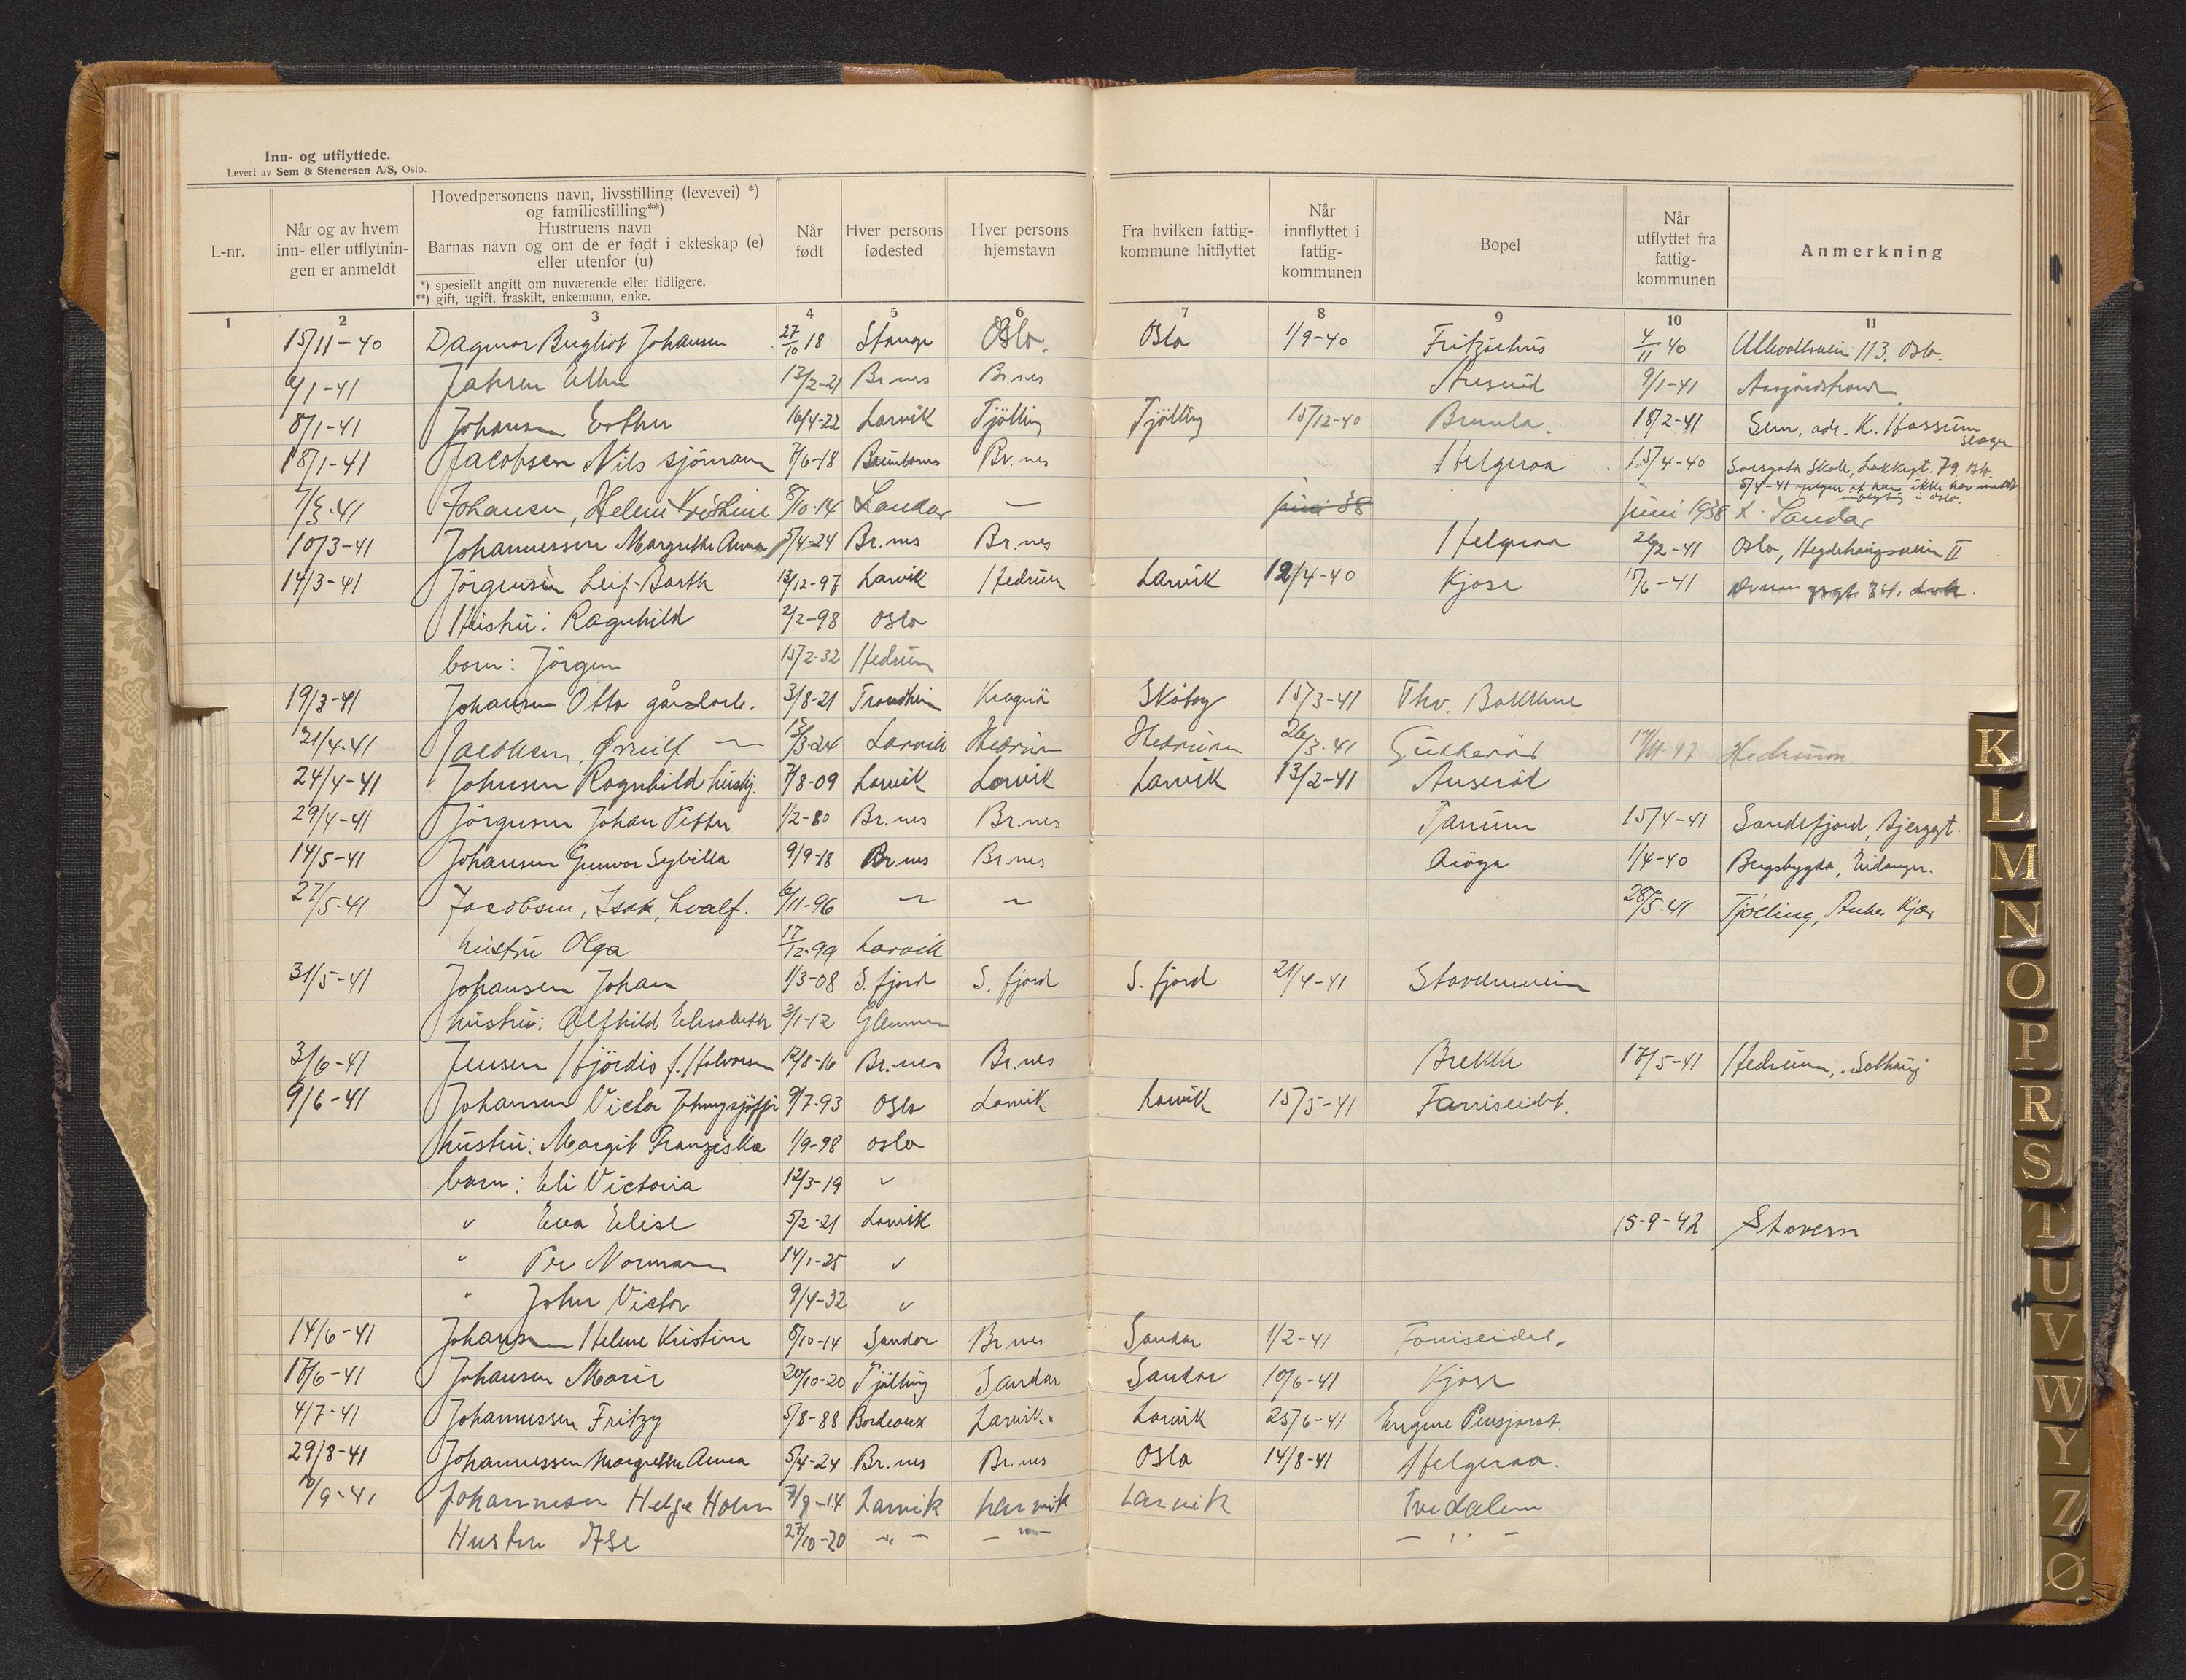 Inn- og utflyttede.
Levert av Sem & Stenersen A/S, Oslo.
L-nr.
Når og av hvem inn- eller utflytnin- gen er anmeldt
Hovedpersonens navn, livsstilling (levevei) *) og familiestilling**) Hustruens navn Barnas navn og om de er født i ekteskap (e) eller utenfor (u)
*) spesiellt angitt om nuværende eller tidligere.
**) gift, ugift, fraskilt, enkemann, enke.
Når født
Hver persons fødested
Hver persons hjemstavn
Fra hvilken fattig- kommune hitflyttet
Når innflyttet i fattig- kommunen
Bopel
Når utflyttet fra fattig- kommunen
Anmerkning
1 2 3 4 5 6 7 8 9 10 11
15/11-40 Dagmar Bergliot Johansen 27/10 18 Stange Oslo. Oslo 1/9-40 Fritzøehus 4/11 40 Ullevollsvein 113, Oslo.
6/1-41 Jahren Ellen 13/2-21 Br.nes Br.nes 9/1-41 Aasgårdstrand
8/1-41 Johansen Esther 16/4-22 Larvik Tjölling Tjölling 15/12-40 Brunla. 18/2-41 Sem, adr. K. Hassum
18/1-41 Jacobsen Nils sjömann 7/6-18 Br.nes Helgeroa 15/4-40 Skole, 79, Oslo
5/4-41 at han ikke har i Oslo.
7/3-41 Johansen, Helene Kristine 8/10-14 Sandar — juni 38 juni 1938 Sandar
10/3-41 Johannessen Margrethe Anna 5/4-24 Br.nes Br.nes Helgeroa 26/2-41 Oslo, Hegdehaugsveien II
14/3-41 Jörgensen Leif-Barth 13/12-97 Larvik Hedrum Larvik 12/4-40 Kjose 1/6-41 34, Lvk.
Hustru: Ragnhild 2/2-98 Oslo
barn: Jörgen 15/2-32 Hedrum
19/3-41 Johansen Otto gårdarb. 3/8-21 Trondheim Kragerö Skåtøy 15/3-41 Thv. Bakkene
21/4-41 Jacobsen, Ørnulf — 13/3-24 Larvik Hedrum Hedrum 26/3-41 Hedrum
24/4-41 Johnsen Ragnhild hushj. 7/8-09 Larvik Larvik Larvik 13/2-41 Anseröd
29/4-41 Jörgensen Johan Petter 1/2-80 Br.nes Br.nes Tanum 15/4-41 Sandefjord, Bjerggt.
14/5-41 Johansen Gunvor Sybilla 9/9-18 Br.nes Br.nes 1/4-40 Bergsbygda, Eidanger.
27/5-41 Jacobsen, Isak, 6/11-96 — — 28/5-41 Tjölling, Kjær
hustru Olga 17/12-99 Larvik
31/5-41 Johansen Johan 1/3-08 S. fjord S. fjord S. fjord 21/4-41 Stavernsvein
hustru: Alfhild Elisabeth 3/1-12 Glemmen
3/6-41 Jensen Hjördis f. Halvorsen 12/8-16 Br.nes Br.nes Brekke 18/5-41 Hedrum, Solhaug
9/6-41 Johansen Victor 9/7-93 Oslo Larvik Larvik 15/5-41 Farriseidet.
hustru: Margit Franziska 1/9-98 oslo
barn: Eli Victoria 12/3-19 〃
〃 Eva Elise 5/2-21 Larvik 15-9-42 Stavern
〃 Per Normann 14/1-25 〃
〃 John Victor 9/4-32 〃
14/6-41 Johansen Helene Kristine 8/10-14 Sandar Br.nes Sandar 1/2-41 Farriseidet.
18/6-41 Johansen Marie 20/10-20 Tjölling Sandar Sandar 10/6-41 Kjose
4/7-41 Johannessen Fritzy 5/8-88 Bordeaux Larvik. Larvik 25/6-41 Pensjonat.
29/8-41 Johannessen Margrethe Anna 5/4-24 Br.nes Br.nes Oslo 14/8-41 Helgeroa.
10/9-41 Johannesen Helge Holm 7/9-14 Larvik Larvik Larvik Tvedalen
Hustru Åse 27/10-20 — 〃 — — 〃 — — 〃 —
K
L
M
N
O
P
R
S
T
U
V
W
Y
Z
Ø